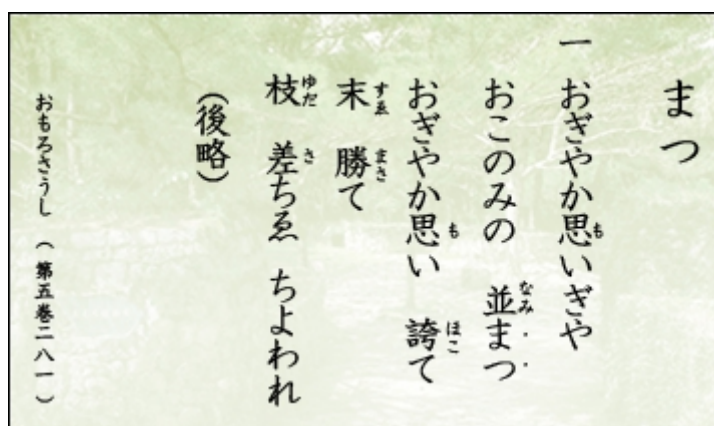 まつ
一 おぎやか思いぎや
おこのみの 並まつ
おぎやか思い 誇て
末 勝て
枝 差ちゑ ちよわれ
(後略)
おもろさうし (第五巻二八一)